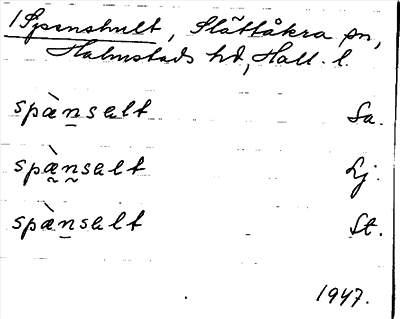 1 Spenshult, Slättåkra sn,
Halmstads hd, Hall. l.
spæ̀n̲salt Sa.
spæ̰̀n̰salt Lj.
spæ̀n̲salt St.
1947.